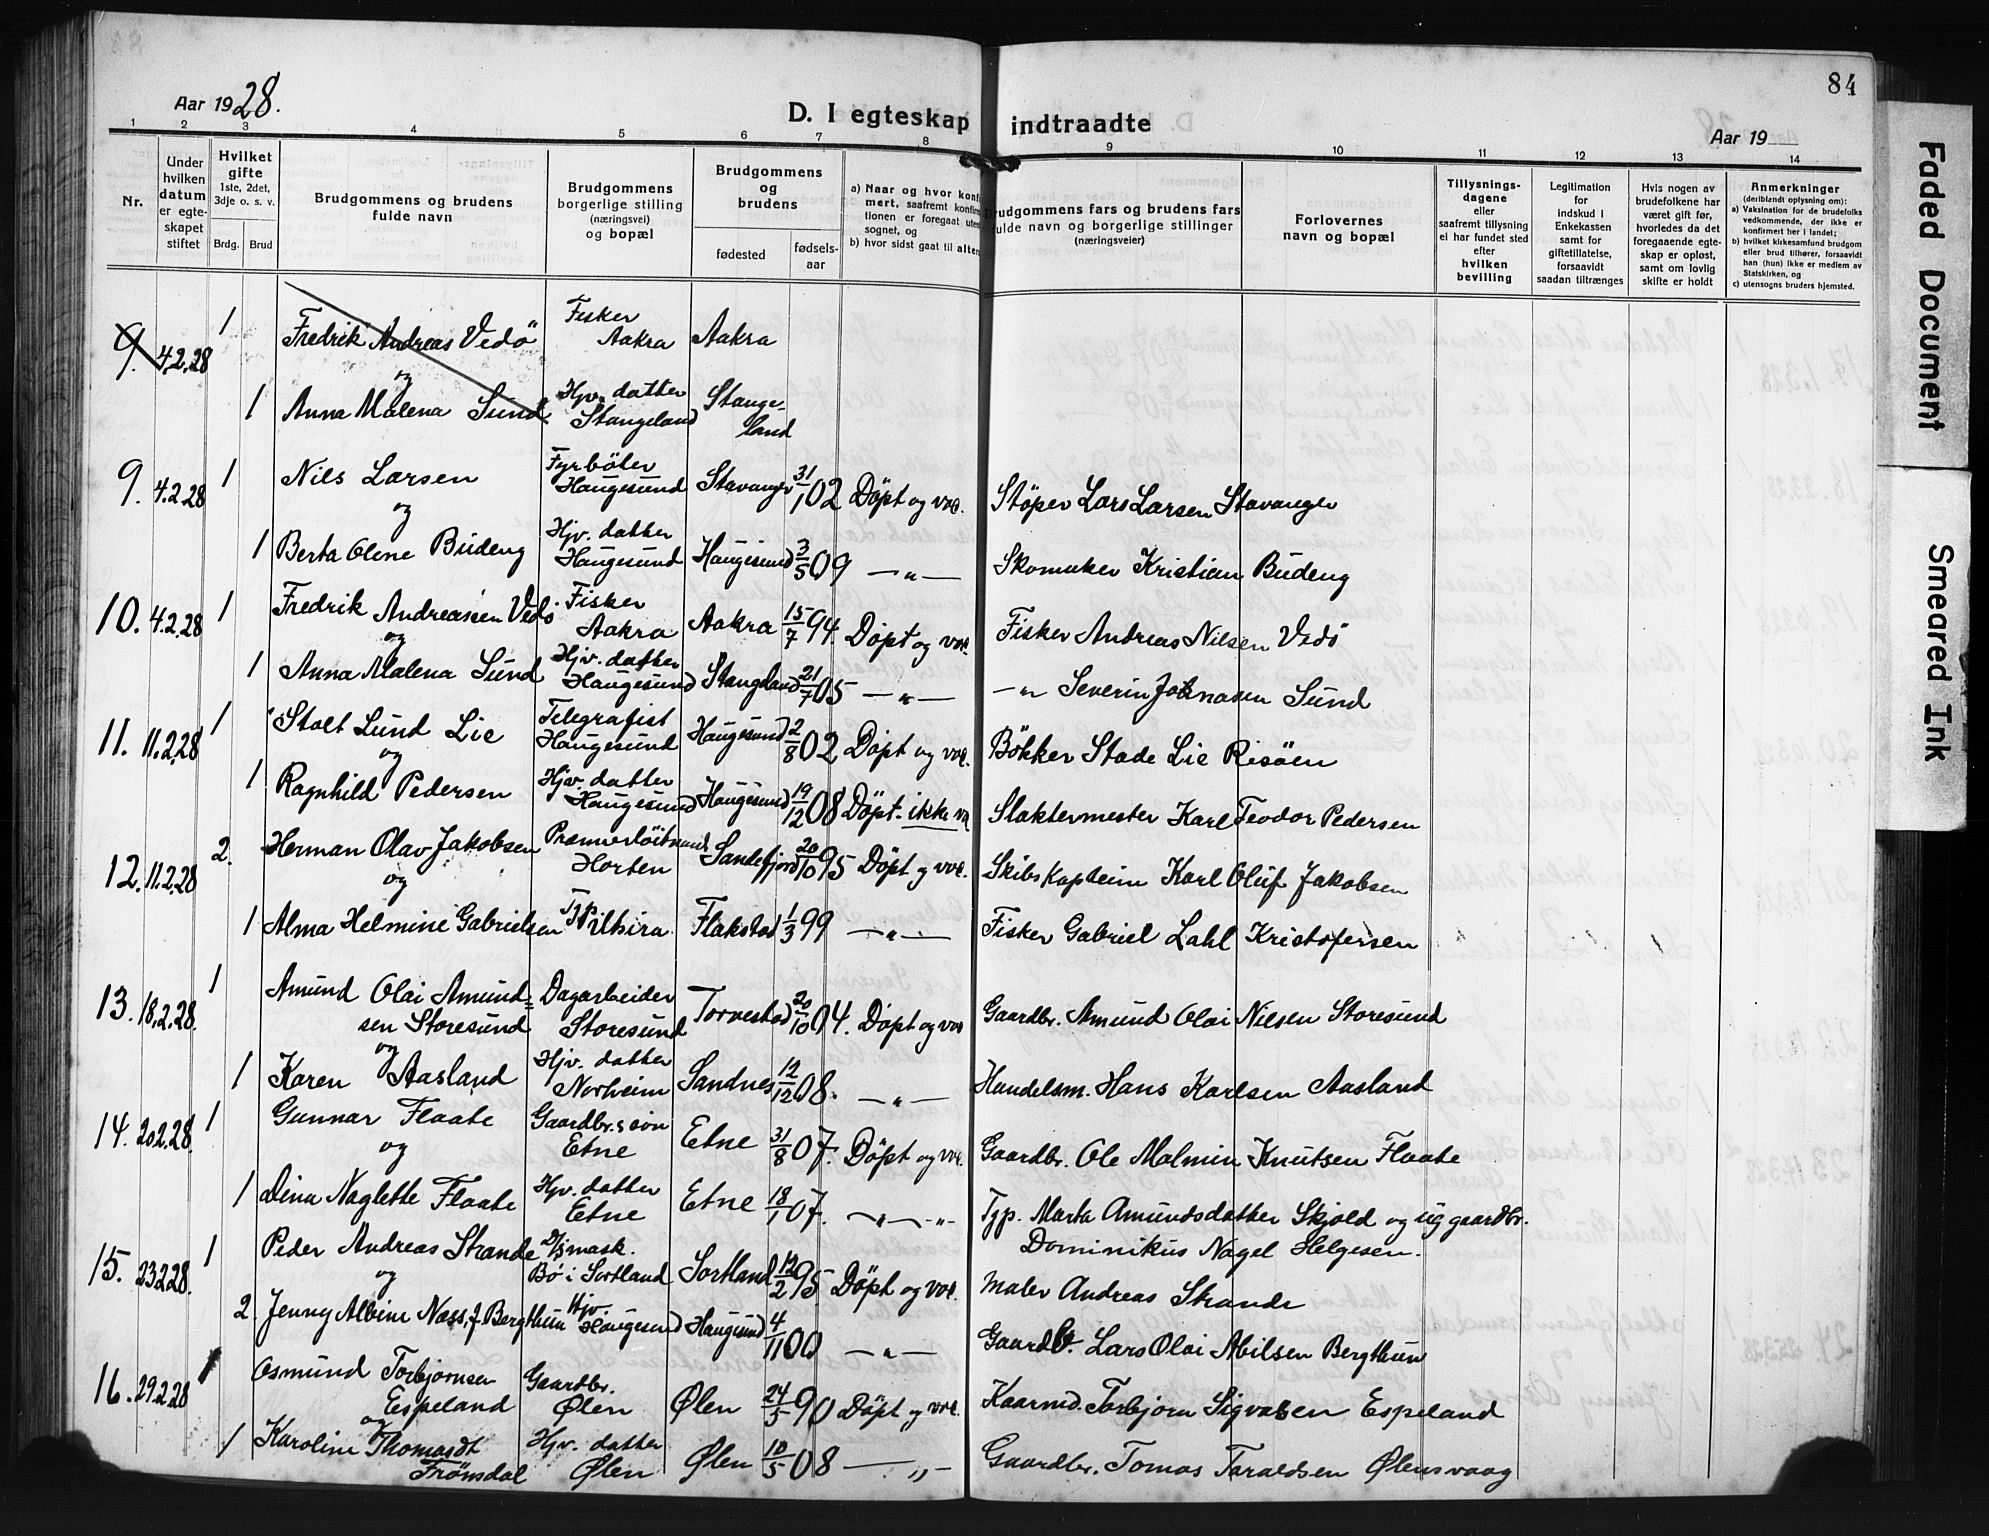 84
Aar 1928.
D. I egteskap indtraadte
Aar 19
1 2 3 4 5 6 7 8 9 10 11 12 13 14
Nr.
Under hvilken datum er egteskapet stiftet
Hvilket gifte 1ste, 2det, 3dje o. s. v.
Brdg. Brud
Brudgommens og brudens fulde navn
Brudgommens borgerlige stilling (næringsvei) og bopæl
Brudgommens og brudens
fødested fødselsaar
a) Naar og hvor konfi
mert, saafremt konfirm
tionen er foregaat uten
sognet, og
b) hvor sidst gaat til alter
udgommens fars og brudens fars
fulde navn og borgerlige stillinger
(næringsveier)
Forlovernes navn og bopæl
Tillysningsdagene eller saafremt tillysning ei har fundet sted efter hvilken bevilling
Legitimation for indskud i Enkekassen samt for giftetillatelse, forsaavidt saadan tiltrænges
Hvis nogen av brudefolkene har været gift før, hvorledes da det foregaaende egteskap er opløst, samt om lovlig skifte er holdt
Anmerkninger
(deriblandt oplysning om):
a) Vaksination for de brudefolks vedkommende, der ikke er konfirmert her i landet;
b) hvilket kirkesamfund brudgom eller brud tilhører, forsaavidt han (hun) ikke er medlem av Statskirken, og
c) utensogns bruders hjemsted.
9. 4.2.28 1 Fredrik Andreas Vedö Fisker Aakra Aakra
og
1 Anna Malena Sund Hjv. datter Stangeland Stangeland
9. 4.2.28 1 Nils Larsen Fyrböter Haugesund Stavanger 31/1 02 Döpt og vac. Støper Lars Larsen Stavanger
og
1 Berta Oline Büdeng Hjv. datter Haugesund Haugesund 3/5 09 —"— Skomaker Kristian Büdeng
10. 4.2.28 1 Fredrik Andreassen Vedö Fisker Aakra Aakra 15/7 94. Döpt og vac. Fisker Andreas Nilsen Vedö
og
1 Anna Malena Sund Hjv. datter Haugesund Stangeland 21/7 05 —"— —"— Severin Johnasen Sund
11. 11.2.28 1 Stolt Lund Lie Telegrafist Haugesund Haugesund 2/8 02 Döpt og vac. Bökker Stade Lie Risöen
og
1 Ragnhild Pedersen Hjv. datter Haugesund Haugesund 19/12 08 Döpt. ikke va Slaktermester Karl Teodor Pedersen
12. 11.2.28 2. Herman Olav Jakobsen Premierlöitnant Horten Sandefjord 20/10 95 Döpt og vac. Skibskaptein Karl Oluf Jakobsen
og
1 Alma Helmine Gabrielsen Typ. Utsira Flakstad 1/3 99 —"— Fisker Gabriel Lahl Kristofersen
13. 18.2.28. 1 Amund Olai Amundsen Storesund Dagarbeider Storesund Torvestad 20/10 04. Döpt og vac Gaardbr. Amund Olai Nilsen Storesund
og
1 Karen Aasland Hjv. datter Norheim Sandnes 12/12 08. —"— Handelsm. Hans Karlsen Aasland
14. 20.2.28. 1 Gunnar Flaate Gaardbr.s søn Etne Etne 31/8 07. Döpt og vac. Gaardbr. Ole Malmin Knutsen Flaate
og
1 Dina Naglette Flaate Hjv. datter Etne Etne 18/1 07. —"—"— Typ. Marta Amundsdatter Skjold og ug gaardbr.
Dominikus Nagel Helgesen.
15. 23.2.28. 1 Peder Andreas Strande D/s mask. Bö i Sortland Sortland 12/2 95 Döpt og vac. Maler Andreas Strande
og
2. Jenny Albine Næss, f. Bergthun Hjv. Haugesund Haugesund 4/11 00 —"— Gaardbr. Lars Olai Abilsen Bergthun
16. 29.2.28 1 Osmund Torbjørnsen Espeland Gaardbr. Ølen Ølen 24/5 90 Döpt og vac. Kaarmd. Torbjørn Sigvatsen Espeland
og
1 Karoline Thomasdt Frönsdal Hjv. datter Ølen Ølen 10/5 08 —"— Gaardbr. Tomas Taraldsen Ølensvaag
Faded Document
Smeared Ink